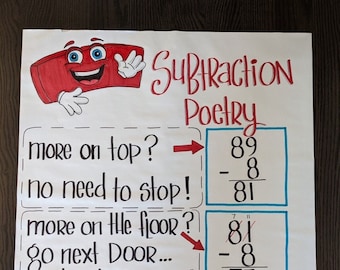 Subtraction
Poetry
more on top?
no need to stop!
89
- 8
81
more on the floor?
go next DOOR...
7 11
81
- 8